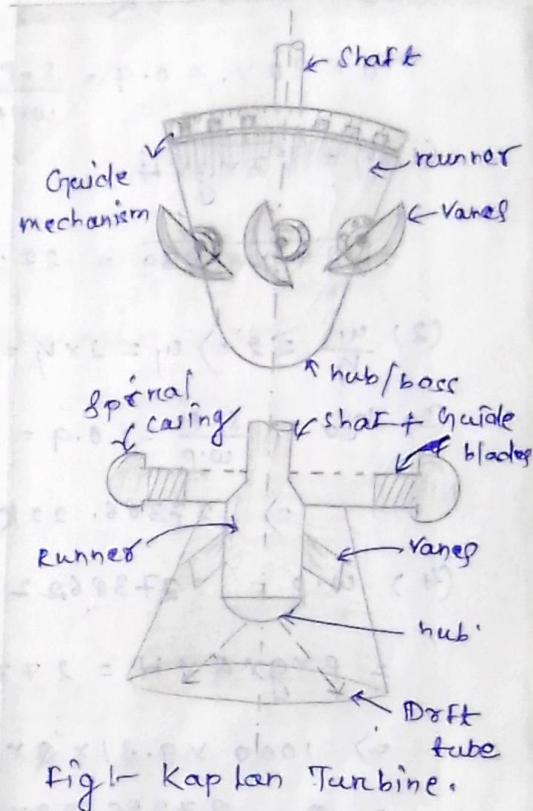 Shaft
Guide
mechanism
runner
Vanes
hub/boss
Spiral
casing
Shaft
Guide
blades
Runner
Vanes
hub
Drft
tube
Fig1- Kaplan Turbine.